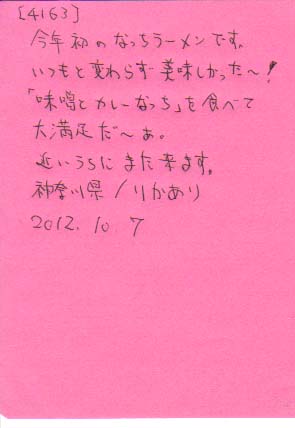 [4163]
今年初のなっちラーメンです。
いつもと変わらず美味しかった〜!
「味噌とカレーなっち」を食べて
大満足だ〜ぁ。
近いうちにまた来ます。
神奈川県/りかあり
2012.10.7